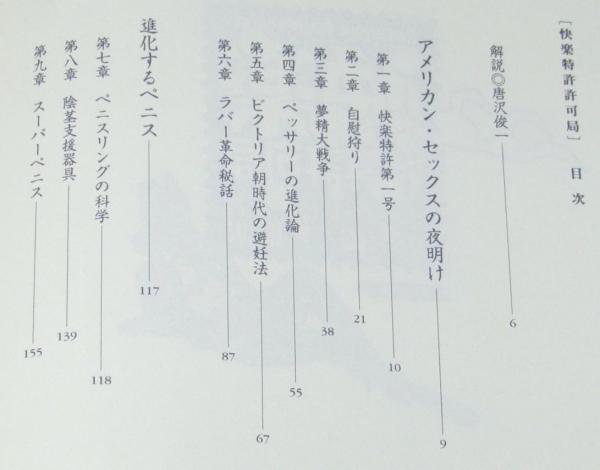 ［快楽特許許可局］ 目次
解説◎唐沢俊一 6
アメリカン・セックスの夜明け 9
第一章 快楽特許第一号 10
第二章 自慰狩り 21
第三章 夢精大戦争 38
第四章 ペッサリーの進化論 55
第五章 ビクトリア朝時代の避妊法 67
第六章 ラバー革命秘話 87
進化するペニス 117
第七章 ペニスリングの科学 118
第八章 陰茎支援器具 139
第九章 スーパーペニス 155